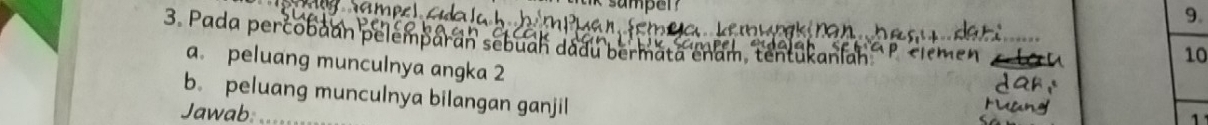 sampel?
ruang sampel adalah himpunan semua kemungkinan hasil dari
suatu percobaan acak dan titik sampel adalah setiap elemen atau
3. Pada percobaan pelemparan sebuah dadu bermata enam, tentukanlah:
dari
ruang
a. peluang munculnya angka 2
b. peluang munculnya bilangan ganjil
Jawab:..........
9.
10
11